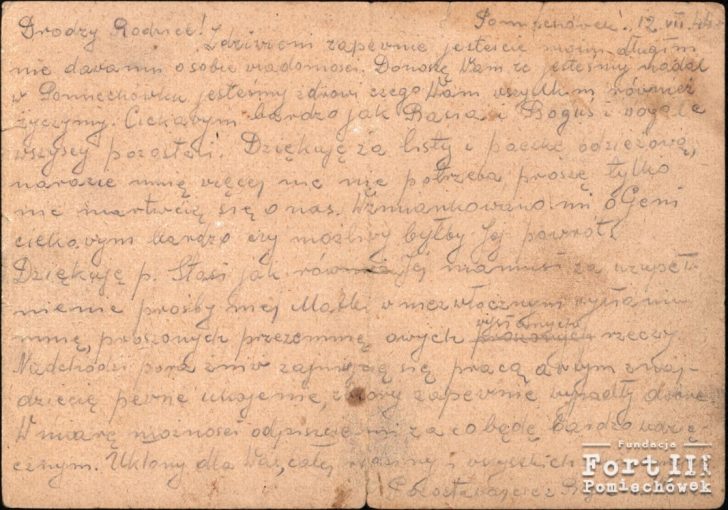 Pomiechówek, 12.VII.44
Drodzy Rodzice!
Zdziwieni zapewnie jesteście moim długim
nie dawaniu o sobie wiadomości. Donoszę Wam że jesteśmy nadal
w Pomiechówku jesteśmy zdrowi czego Wam wszystkim również
życzymy. Ciekawym bardzo jak Basia i Boguś i wogóle
wszyscy pozostali. Dziękuję za listy i paczkę odzieżową,
narazie mnię więcej nic nie potrzeba proszę tylko
nie martwcię się o nas. Wzmiankowano mi o Geni
ciekawym bardzo czy możliwy byłby Jej powrót?
Dziękuję p. Stasi jak również Jej mamusi za uzupeł-
nienie prośby mej Matki w niezwłocznym wysłaniu
mnię, proszonych przezemnię owych wysłanych rzeczy
Nadchodzi pora żniw zajmując się pracą a w tym znaj-
dziecię pewne ukojenie, zbiory zapewnie wypadły dobrze
W miarę możności odpiszcie mi za co będę bardzo wdzię-
cznym. Ukłony dla Was, całej rodziny i wszystkich
Pozostający
Fundacja
Fort III
Pomiechówek